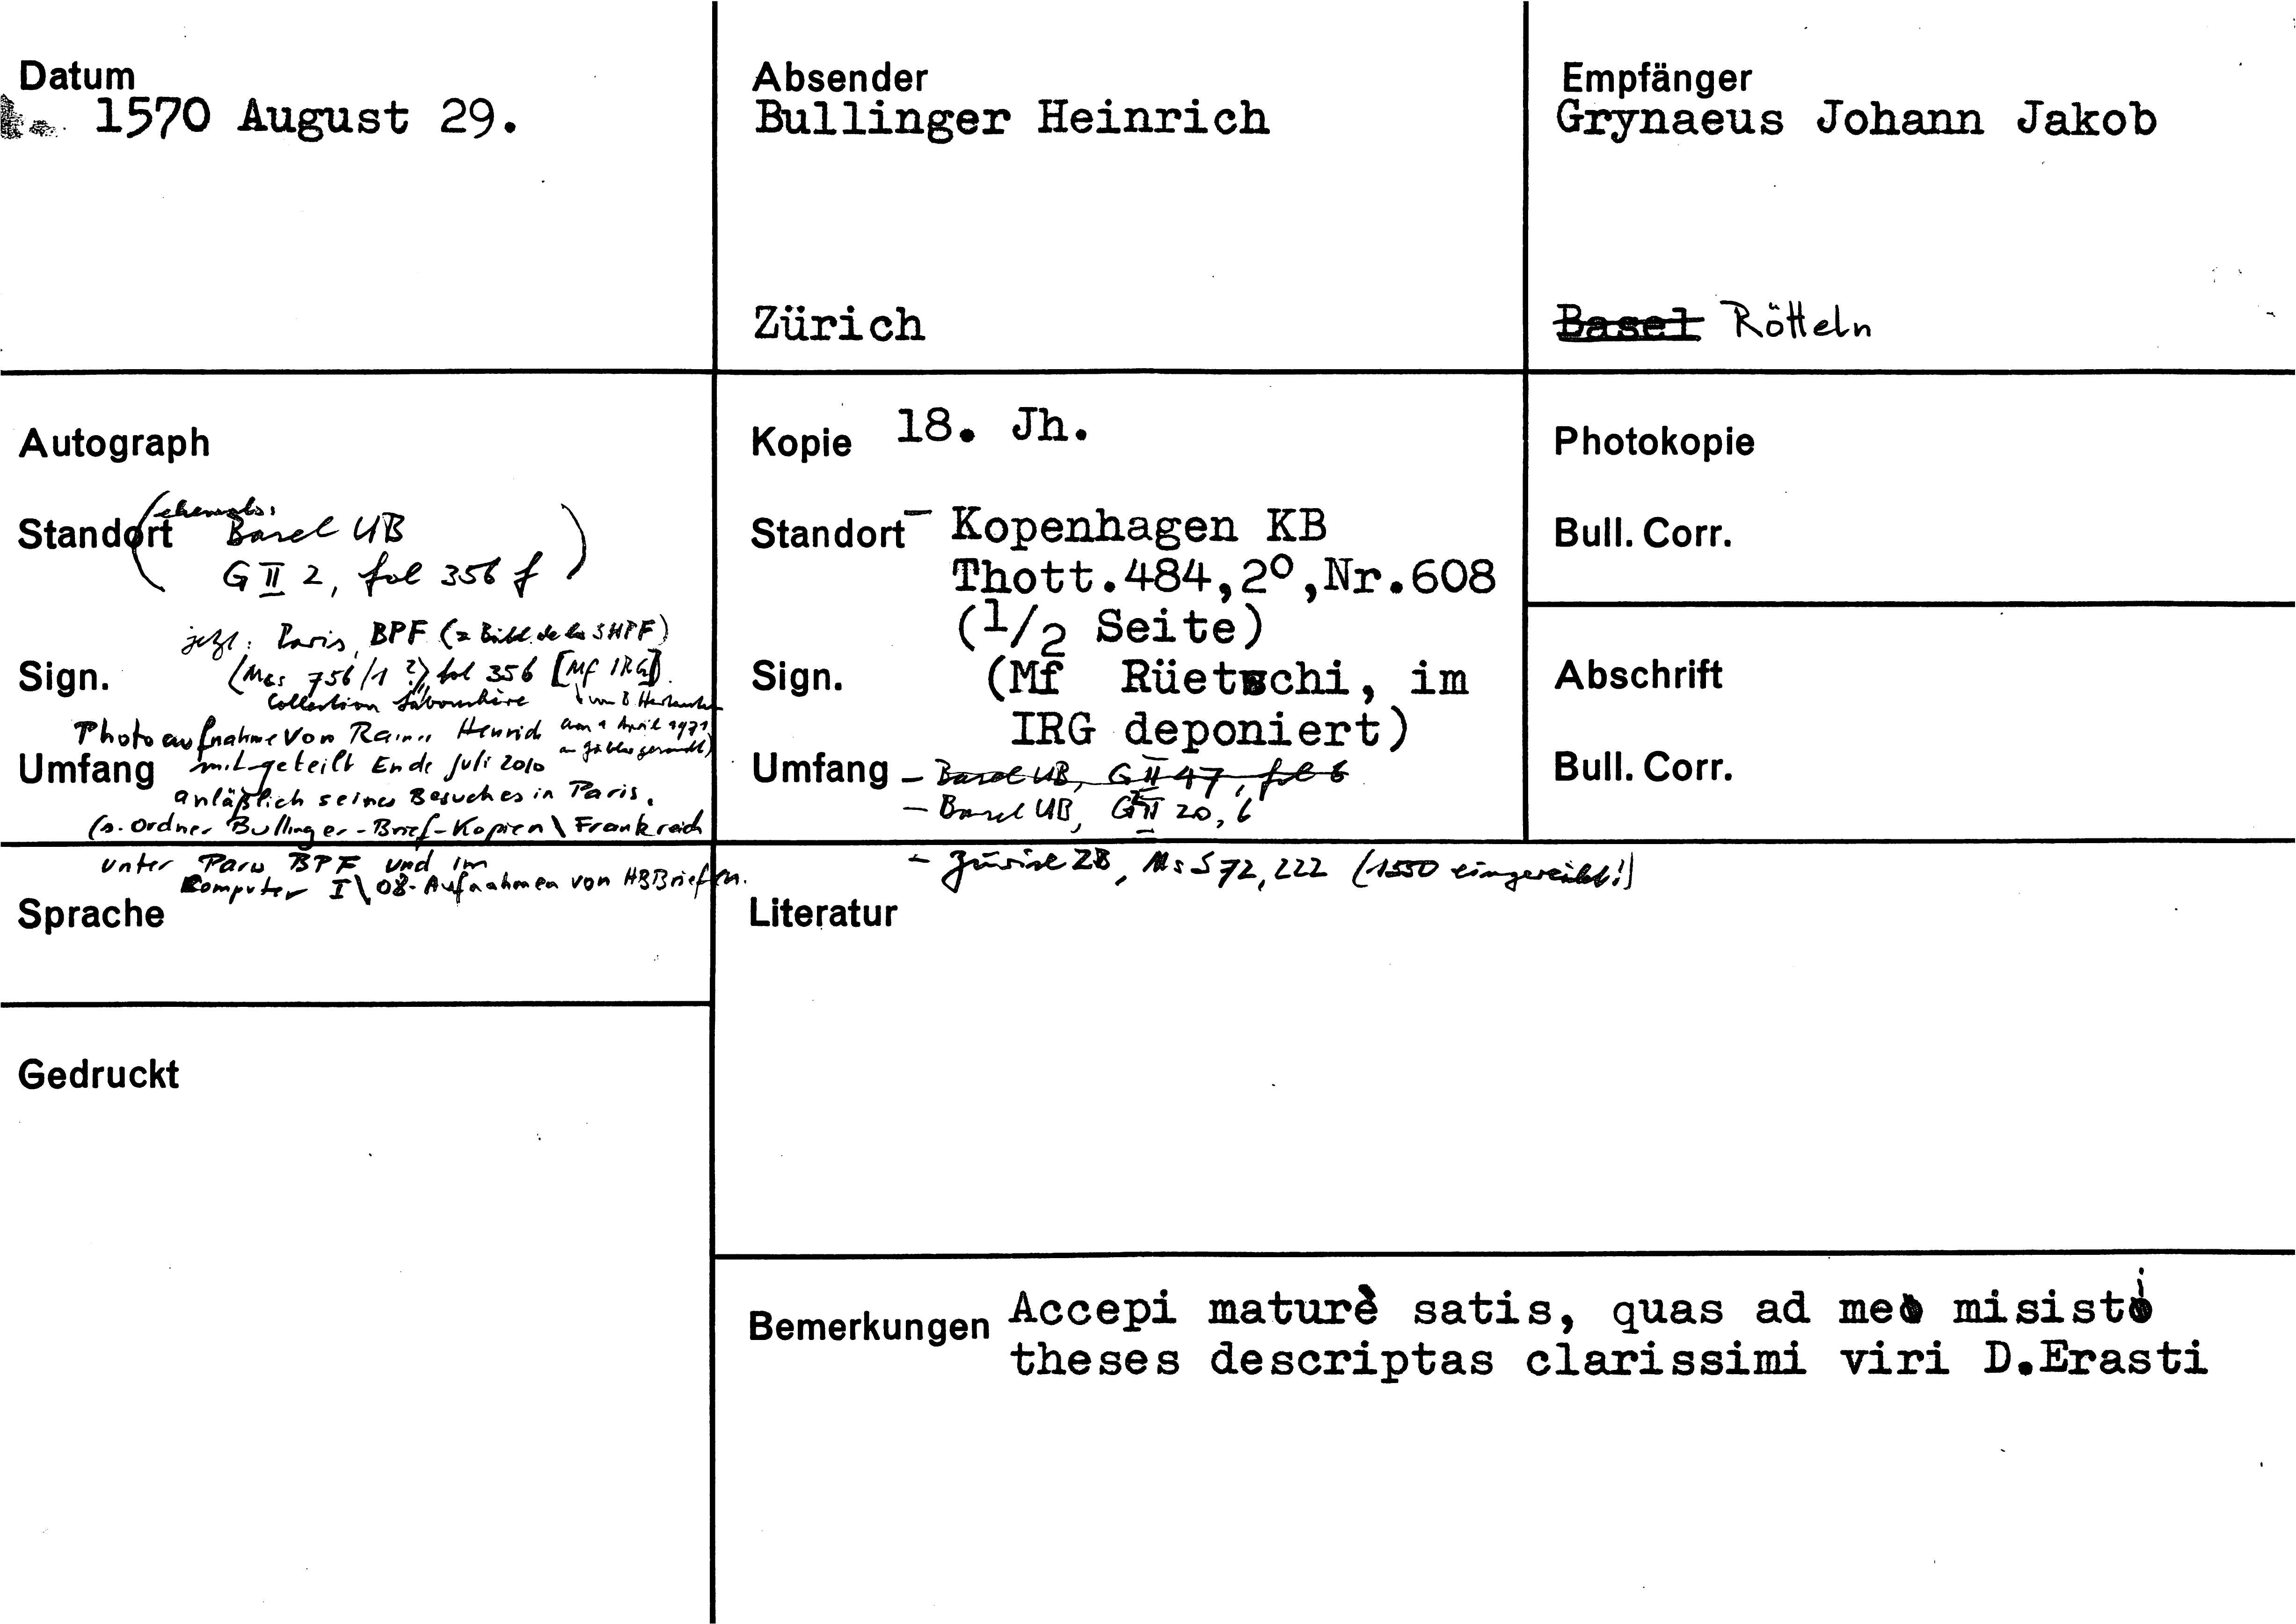 Datum
1570 August 29.
Absender
Bullinger Heinrich
Zürich
Empfänger
Grynaeus Johann Jakob
Basel Rötteln
Autograph
(ehemals:
Standort Basel UB
G II 2, fol 356 f)
jetzt: Paris, BPF (= Bibl. de la SHPF)
Sign. (Mss 756/1 ?) fol 356 [Mf IRG].
Collection
Photoaufnahme von Rainer Henrich am 1 April 1971
Umfang mitgeteilt Ende Juli 2010
anläßlich seines Besuches in Paris.
(s. Ordner Bullinger-Brief-Kopien \ Frankreich
unter Paris BPF und im
Computer I \ 08-Aufnahmen von HBBriefen.
Kopie 18. Jh.
Standort - Kopenhagen KB
Thott.484,2°,Nr.608
(1/2 Seite)
Sign. (Mf Rüetschi, im
IRG deponiert)
Umfang - Basel UB, G II 47, fol 6
- Basel UB, G II 20, 6
- Zürich ZB, Ms S 72, 222 (1550 eingereiht!)
Photokopie
Bull. Corr.
Abschrift
Bull. Corr.
Sprache
Literatur
Gedruckt
Bemerkungen Accepi maturè satis, quas ad me misisti
theses descriptas clarissimi viri D.Erasti